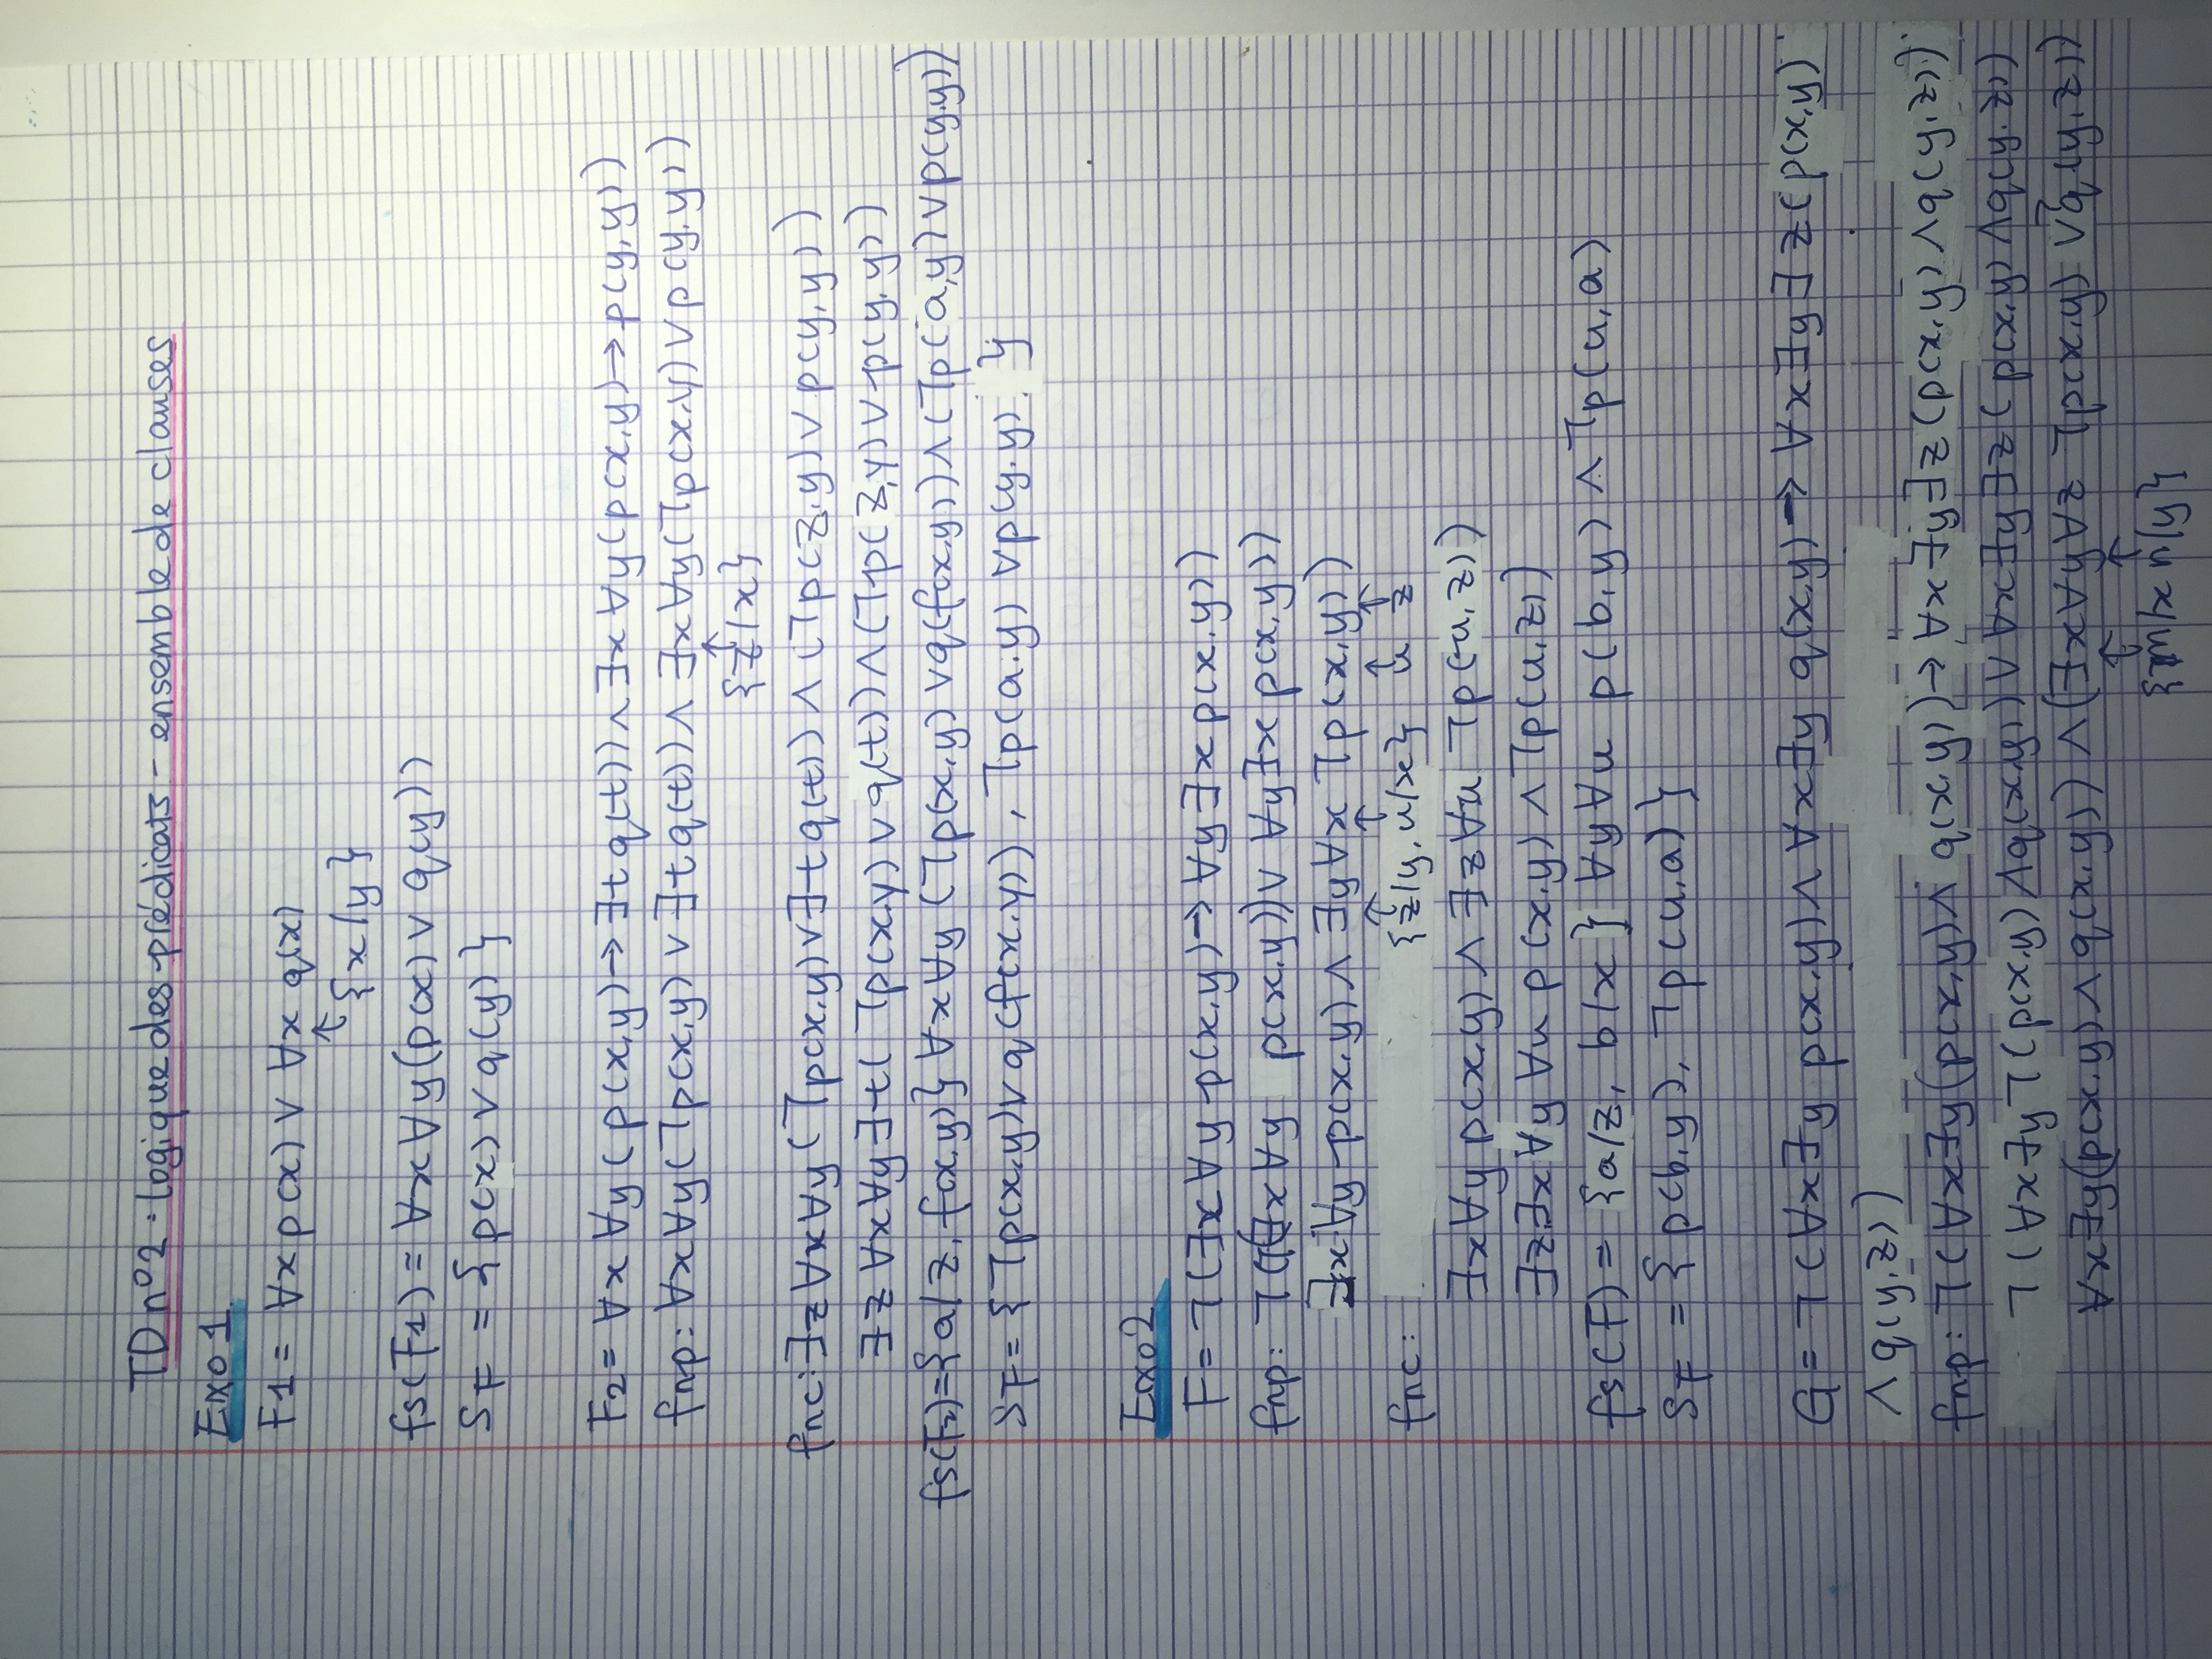 TD n°2 : logique des prédicats - ensemble de clauses
Exo 1
F1 = ∀x p(x) ∨ ∀x q(x)
↑ {x/y}
fs(F1) = ∀x∀y(p(x) ∨ q(y))
SF = {p(x) ∨ q(y)}
F2 = ∀x ∀y (p(x,y) → ∃t q(t)) ∧ ∃x ∀y(p(x,y) → p(y,y))
fnp: ∀x∀y(¬p(x,y) ∨ ∃t q(t)) ∧ ∃x∀y(¬p(x,y) ∨ p(y,y))
↑ {z/x}
fnc: ∃z ∀x∀y (¬p(x,y) ∨ ∃t q(t)) ∧ (¬p(z,y) ∨ p(y,y))
∃z ∀x∀y∃t( ¬p(x,y) ∨ q(t)) ∧ (¬p(z,y) ∨ p(y,y))
fs(F2)={a/z, f(x,y)} ∀x∀y (¬p(x,y) ∨ q(f(x,y)) ∧ (¬p(a,y) ∨ p(y,y))
SF = {¬p(x,y) ∨ q(f(x,y)), ¬p(a,y) ∨ p(y,y) }
Exo 2
F = ¬(∃x ∀y p(x,y) → ∀y ∃x p(x,y))
fnp: ¬(¬(∃x ∀y p(x,y)) ∨ ∀y ∃x p(x,y))
∃x ∀y p(x,y) ∧ ∃y ∀x ¬p(x,y))
↑ ↑ ↑ ↑
fnc: {z/y, u/x} u z
∃x ∀y p(x,y) ∧ ∃z ∀u ¬p(u,z))
∃z∃x ∀y ∀u p(x,y) ∧ ¬p(u,z))
fs(F) = {a/z, b/x} ∀y∀u p(b,y) ∧ ¬p(u,a)
SF = {p(b,y), ¬p(u,a)}
G = ¬(∀x∃y p(x,y) ∧ ∀x∃y q(x,y) → ∀x∃y∃z(p(x,y)
∧ q(y,z))
fnp: ¬(∀x∃y(p(x,y) ∧ q(x,y)) → ∀x∃y∃z(p(x,y) ∧ q(y,z))
¬(∀x∃y ¬(p(x,y) ∧ q(x,y)) ∨ ∀x∃y∃z(p(x,y) ∧ q(y,z))
∀x∃y(p(x,y) ∧ q(x,y)) ∧ (∃x∀y∀z ¬p(x,y) ∨ ¬q(y,z))
↑ ↑
/x u/y}